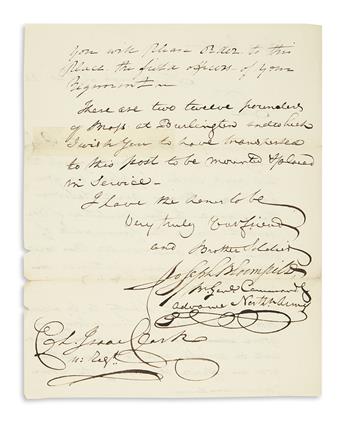 You will please order to this
place the field officers of your
Regiment
There are two twelve pounders
of Brass at Burlington which
I wish You to have transported
to this post to be mounted & placed
in Service-
I have the honor to be
Very truly Your friend
and Brother Soldier
Joseph Bloomfield
B. Genl Commandg
advance North Army
Col. Isaac Clark
11. Regt.